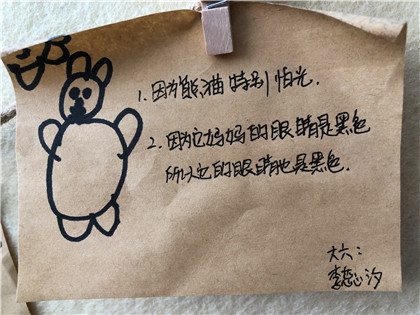 1. 因为熊猫特别怕光.
2. 因为它妈妈的眼睛是黑色
所以它的眼睛也是黑色.
大六:
李恋心汐